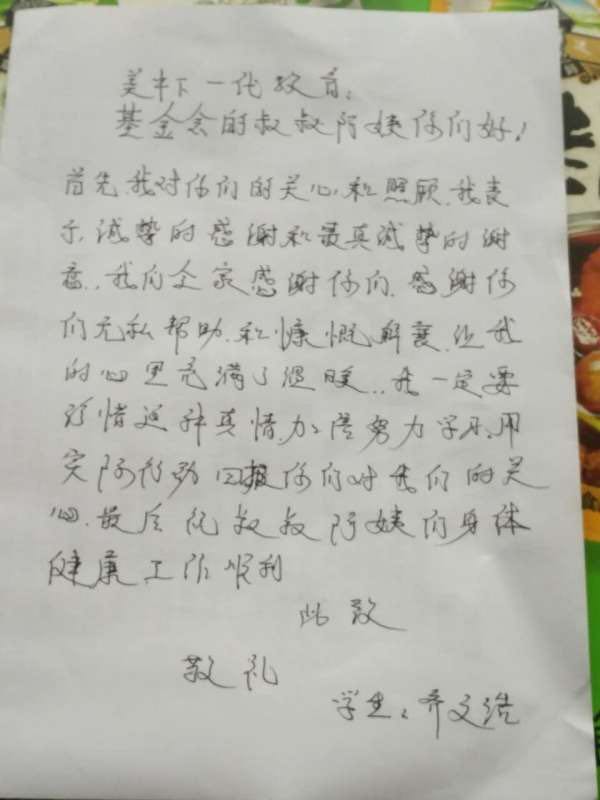 美丰下一代教育:
基金会的叔叔阿姨你们好!
首先,我对你们的关心.和照顾.我表
示,诚挚的感谢和最真诚挚的谢
意..我们全家感谢你们.感谢你
们无私帮助.和慷慨解囊.让我
的心里充满了温暖..我一定要
珍惜这种真情.加倍努力学习.用
实际行动回报你们对我们的关
心.最后祝叔叔阿姨们身体
健康.工作顺利
此致
敬礼
学生:齐文浩